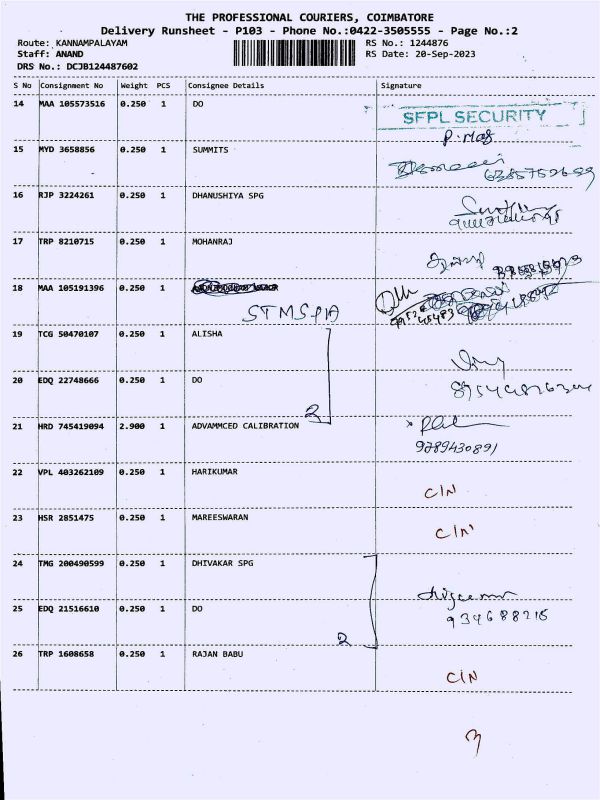 THE PROFESSIONAL COURIERS, COIMBATORE
Delivery Runsheet - P103 - Phone No.:0422-3505555 - Page No.:2
Route: KANNAMPALAYAM RS No.: 1244876
Staff: ANAND RS Date: 20-Sep-2023
DRS No.: DCJB124487602
S No Consignment No Weight PCS Consignee Details Signature
14 MAA 105573516 0.250 1 DO
SFPL SECURITY
15 MYD 3658856 0.250 1 SUMMITS
16 RJP 3224261 0.250 1 DHANUSHIYA SPG
17 TRP 8210715 0.250 1 MOHANRAJ
18 MAA 105191396 0.250 1
19 TCG 50470107 0.250 1 ALISHA
20 EDQ 22748666 0.250 1 DO
2
21 HRD 745419094 2.900 1 ADVAMMCED CALIBRATION
9789430891
22 VPL 403262109 0.250 1 HARIKUMAR
C/N
23 HSR 2851475 0.250 1 MAREESWARAN
C/N
24 TMG 200490599 0.250 1 DHIVAKAR SPG
25 EDQ 21516610 0.250 1 DO
934688215
2
26 TRP 1608658 0.250 1 RAJAN BABU
C/N
3